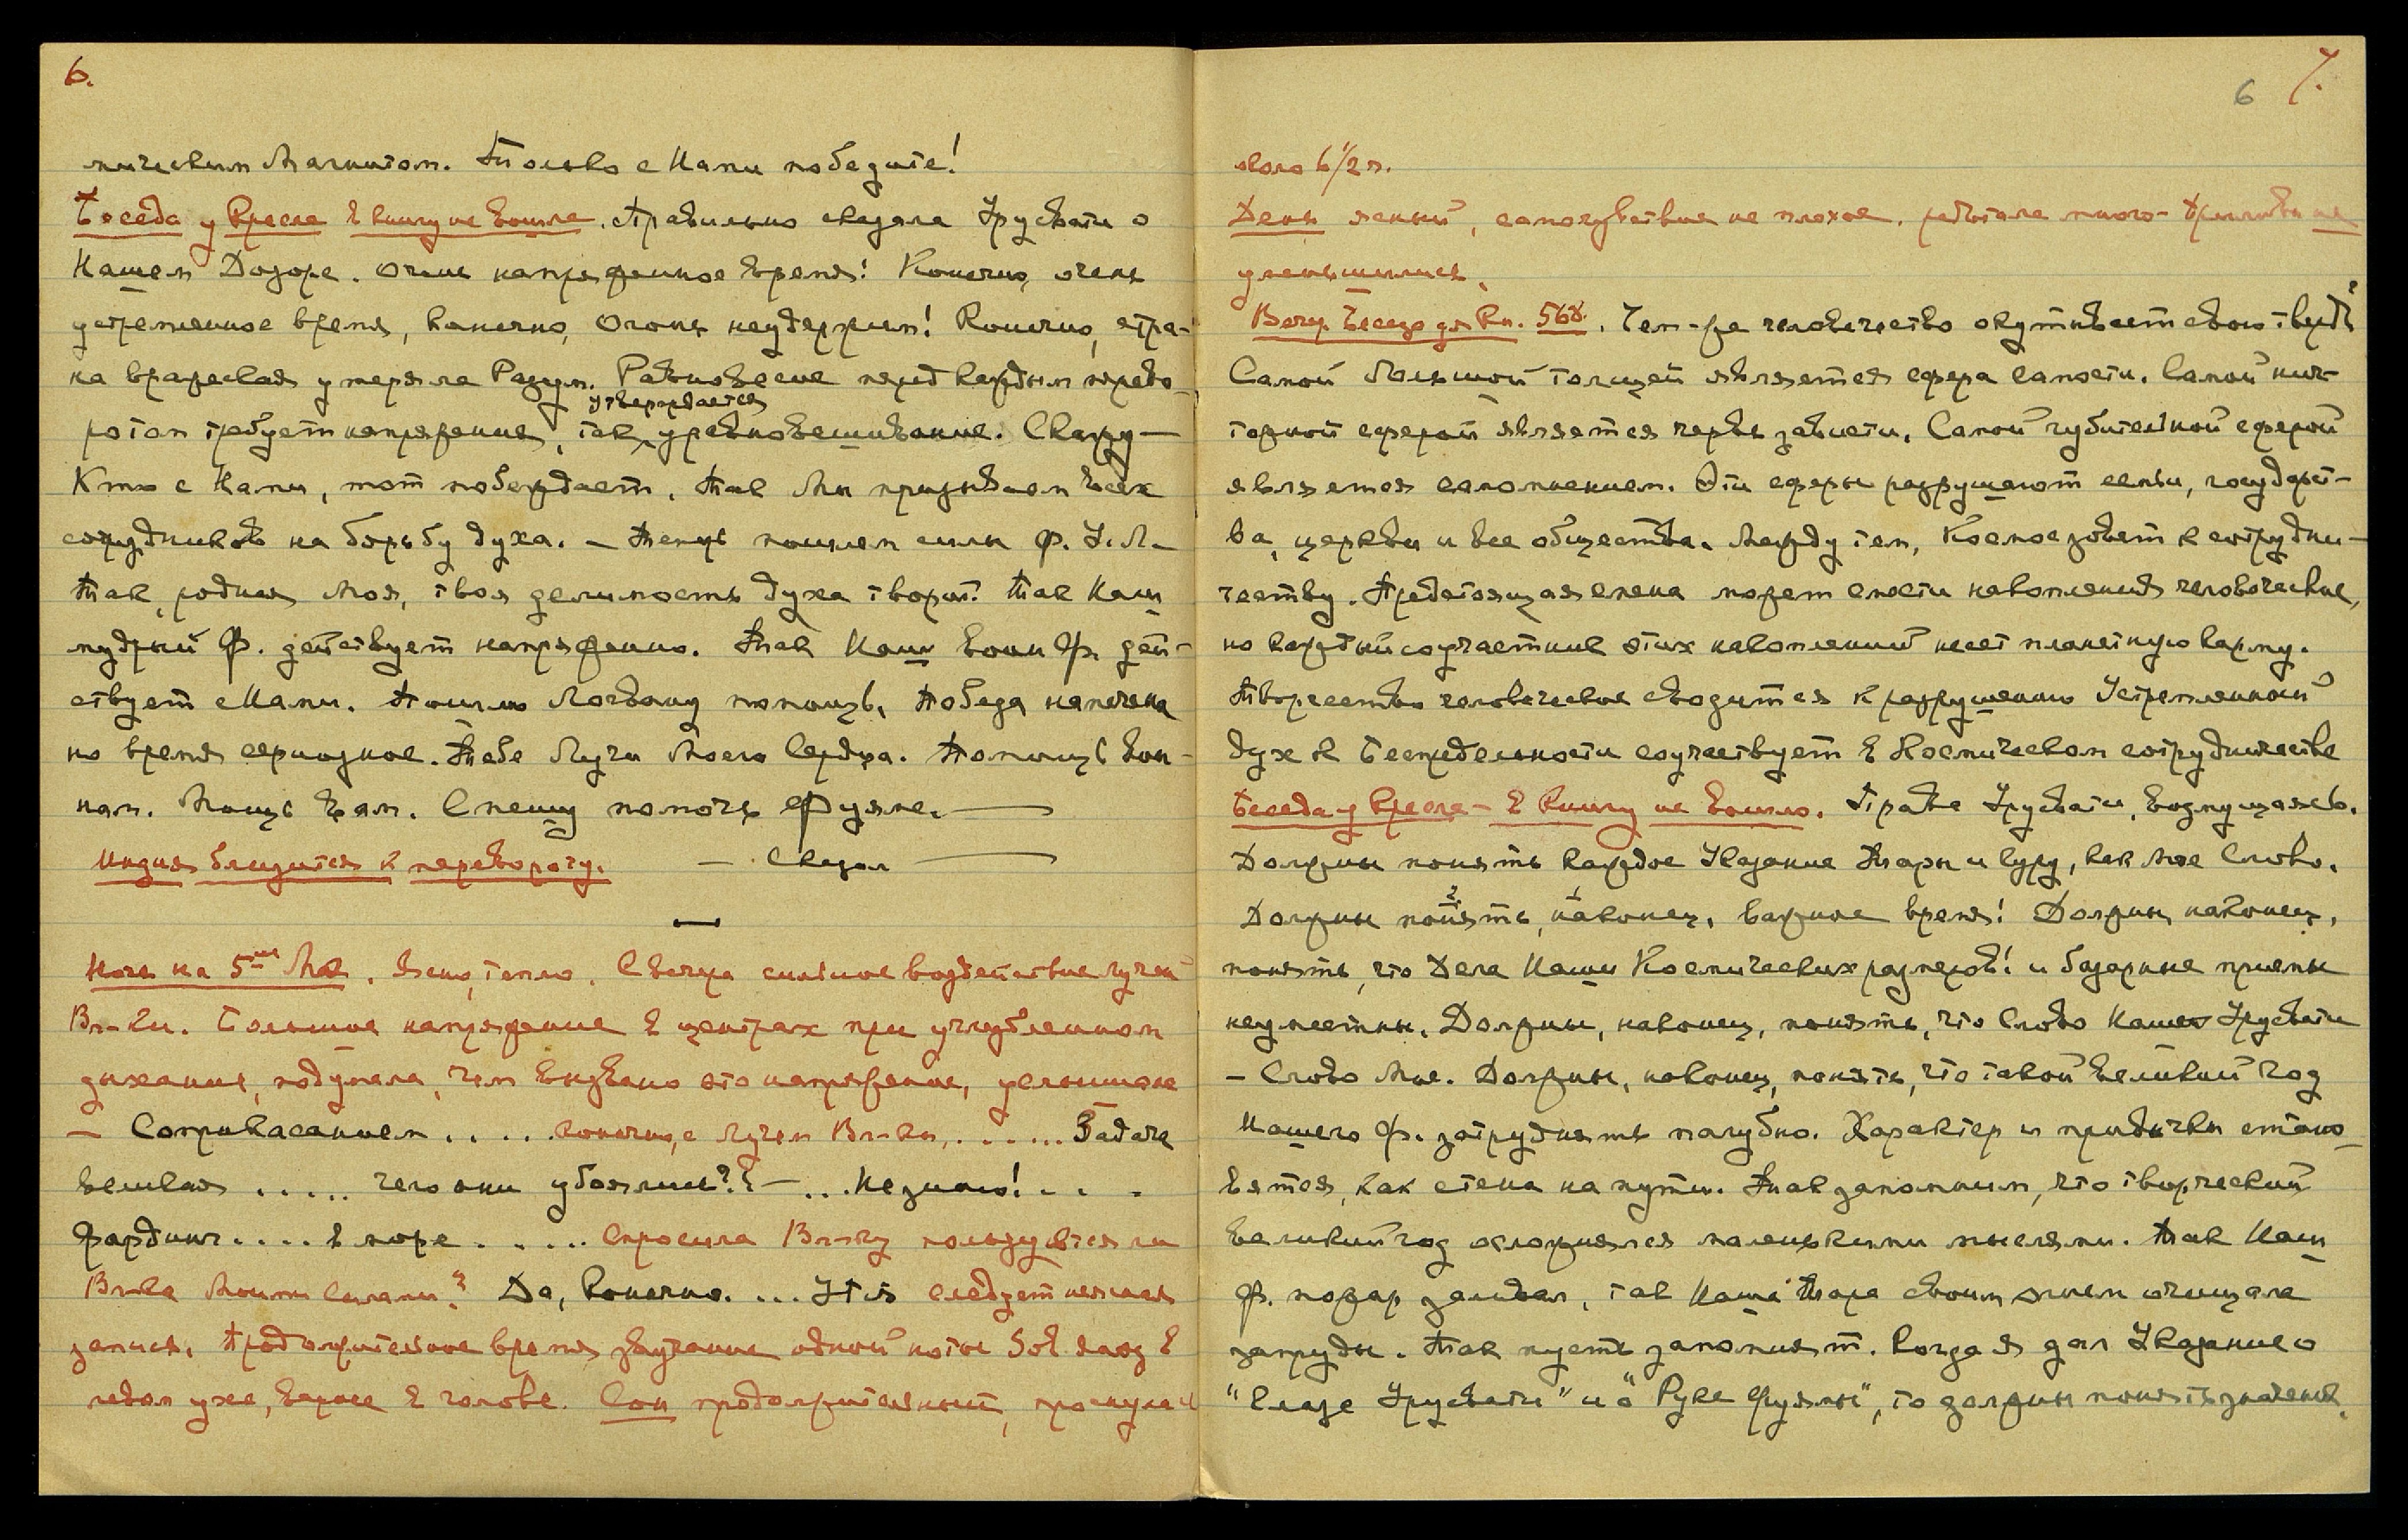 6.
мическим Магнитом. Только с Нами победите!
Беседа у Кресла в книгу не вошла. Правильно сказала Урусвати о
Нашем Дозоре. Очень напряженное время! Конечно, очень
устремленное время, конечно, Огонь неудержим! Конечно, стра-
на вражеская утеряла Разум. Равновесие перед каждым перево-
утверждается
ротом требует напряжения, так уравновешивание. Скажу —
Кто с Нами, тот побеждает. Так Мы призываем всех
сотрудников на борьбу духа. — Теперь пошлем силы Ф. У. Л. —
Так, родная Моя, твоя делимость духа творит! Так Наш
мудрый Ф. действует напряженно. Так Наш воин Ф. дей-
ствует с Нами. Пошлю Логвану помощь. Победа намечена
но время серьозное. Тебе Лучи Моего Сердца. Помощь вои-
нам. Мощь вам. Спешу помочь Фуяме. —
Индия близится к перевороту. — Сказал —
—
Ночь на 5ое Мая. Ясно, тепло. С вечера сильное воздействие лучей
Вл-ки. Большое напряжение в центрах при углубленном
дыхании, подумала, чем вызвано это напряжение, услышала
— Соприкасанием . . . . конечно, с Лучем Вл-ки, . . . . . . Задача
великая . . . . . чего они убоялись?? — . . . Не знаю! . . .
Фардинг . . . . в море . . . . . Спросила Вл-ку пользуется ли
Вл-ка Моими силами? Да, Конечно. . . . Утя следует неясная
запись. Продолжительное время звучание одной ноты Sol звезд в
левом ухе, вернее в голове. Сон продолжительный, проснулась
6 7.
около 6 1/2 ч.
День ясный, самочувствие не плохое. работала много - приливы не
уменьшились.
Веч. Беседа для Кн. 568. Чем-же человечество окутывает свою твердь?
Самой большой толщей является сфера самости. Самой нич-
тожной сферой является червь зависти. Самой губительной сферой
является самомнением. Эти сферы разрушают семьи, государст-
ва, церкви и все общества. Между тем, Космос зовет к сотрудни-
честву. Предстоящая смена может снести накопления человеческие,
но каждый соучастник этих накоплений несет планетную карму.
Творчество человеческое сводится к разрушению Устремленный
дух к Беспредельности соучаствует в Космическом сотрудничестве
Беседа у Кресла - в Книгу не вошло. Права Урусвати, возмущаясь.
Должны понять каждое Указание Тары и Гуру, как Мое Слово.
2 1
Должны понять, наконец, важное время! Должны, наконец,
понять, что Дела Наши Космических размеров! и базарные приемы
неуместны. Должны, наконец, понять, что Слово Нашей Урусвати
— Слово Мое. Должны, наконец, понять, что такой великий год
Нашего Ф. затруднять пагубно. Характер и привычки стано-
вятся, как стена на пути. Так запомним, что творческий
великий год осложнялся маленькими мыслями. Так Наш
Ф. пожар заливал, так Наша Тара своим огнем очищала
запруды. Так пусть запомнят. Когда Я дал Указание о
"Глазе Урусвати" и о "Руке Фуямы", то должны понять значение.